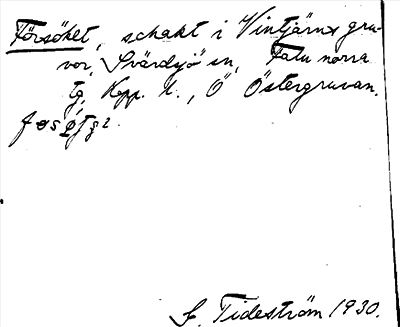 Försöket, schakt i Vintjärns gru-
vor, Svärdsjö sn, Falu norra
tg, Kopp. l., Ö Östergruvan.
S. Tideström 1930.